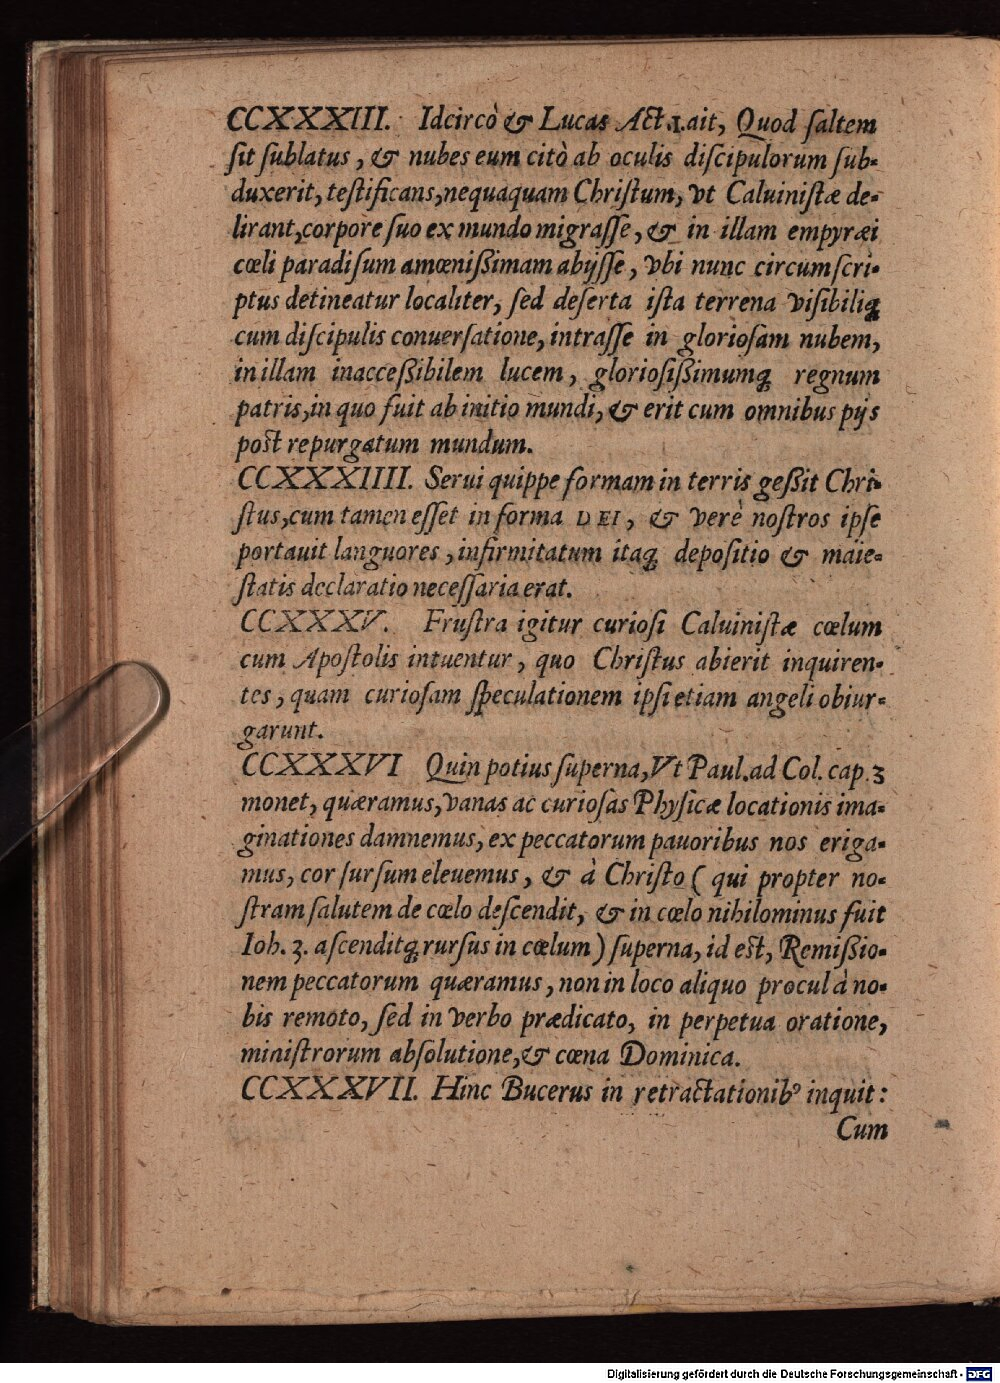 CCXXXIII. Idcircò & Lucas Act.1.ait, Quod ſaltem
ſit ſublatus, & nubes eum citò ab oculis diſcipulorum ſub-
duxerit, teſtificans, nequaquam Chriſtum, vt Caluiniſtæ de-
lirant, corpore ſuo ex mundo migraſſe, & in illam empyræi
cœli paradiſum amœnißimam abijſſe, vbi nunc circumſcri-
ptus detineatur localiter, ſed deſerta iſta terrena viſibiliq́;
cum diſcipulis conuerſatione, intraſſe in glorioſam nubem,
in illam inacceßibilem lucem, glorioſißimumq́; regnum
patris, in quo fuit ab initio mundi, & erit cum omnibus pijs
poſt repurgatum mundum.
CCXXXIIII. Serui quippe formam in terris geßit Chri-
ſtus, cum tamen eſſet in forma DEI, & verè noſtros ipſe
portauit languores, infirmitatum itaq́; depoſitio & maie-
ſtatis declaratio neceſſaria erat.
CCXXXV. Fruſtra igitur curioſi Caluiniſtæ cœlum
cum Apoſtolis intuentur, quo Chriſtus abierit inquiren-
tes, quam curioſam ſpeculationem ipſi etiam angeli obiur-
garunt.
CCXXXVI Quin potius ſuperna, Vt Paul. ad Col. cap. 3
monet, quæramus, vanas ac curioſas Phyſicæ locationis ima-
ginationes damnemus, ex peccatorum pauoribus nos eriga-
mus, cor ſurſum eleuemus, & à Chriſto ( qui propter no-
ſtram ſalutem de cœlo deſcendit, & in cœlo nihilominus fuit
Ioh. 3. aſcenditq́; rurſus in cœlum ) ſuperna, id eſt, Remißio-
nem peccatorum quæramus, non in loco aliquo procul à no-
bis remoto, ſed in verbo prædicato, in perpetua oratione,
miniſtrorum abſolutione, & cœna Dominica.
CCXXXVII. Hinc Bucerus in retractationibꝰ inquit:
Cum
Digitalisierung gefördert durch die Deutsche Forschungsgemeinschaft - DFG